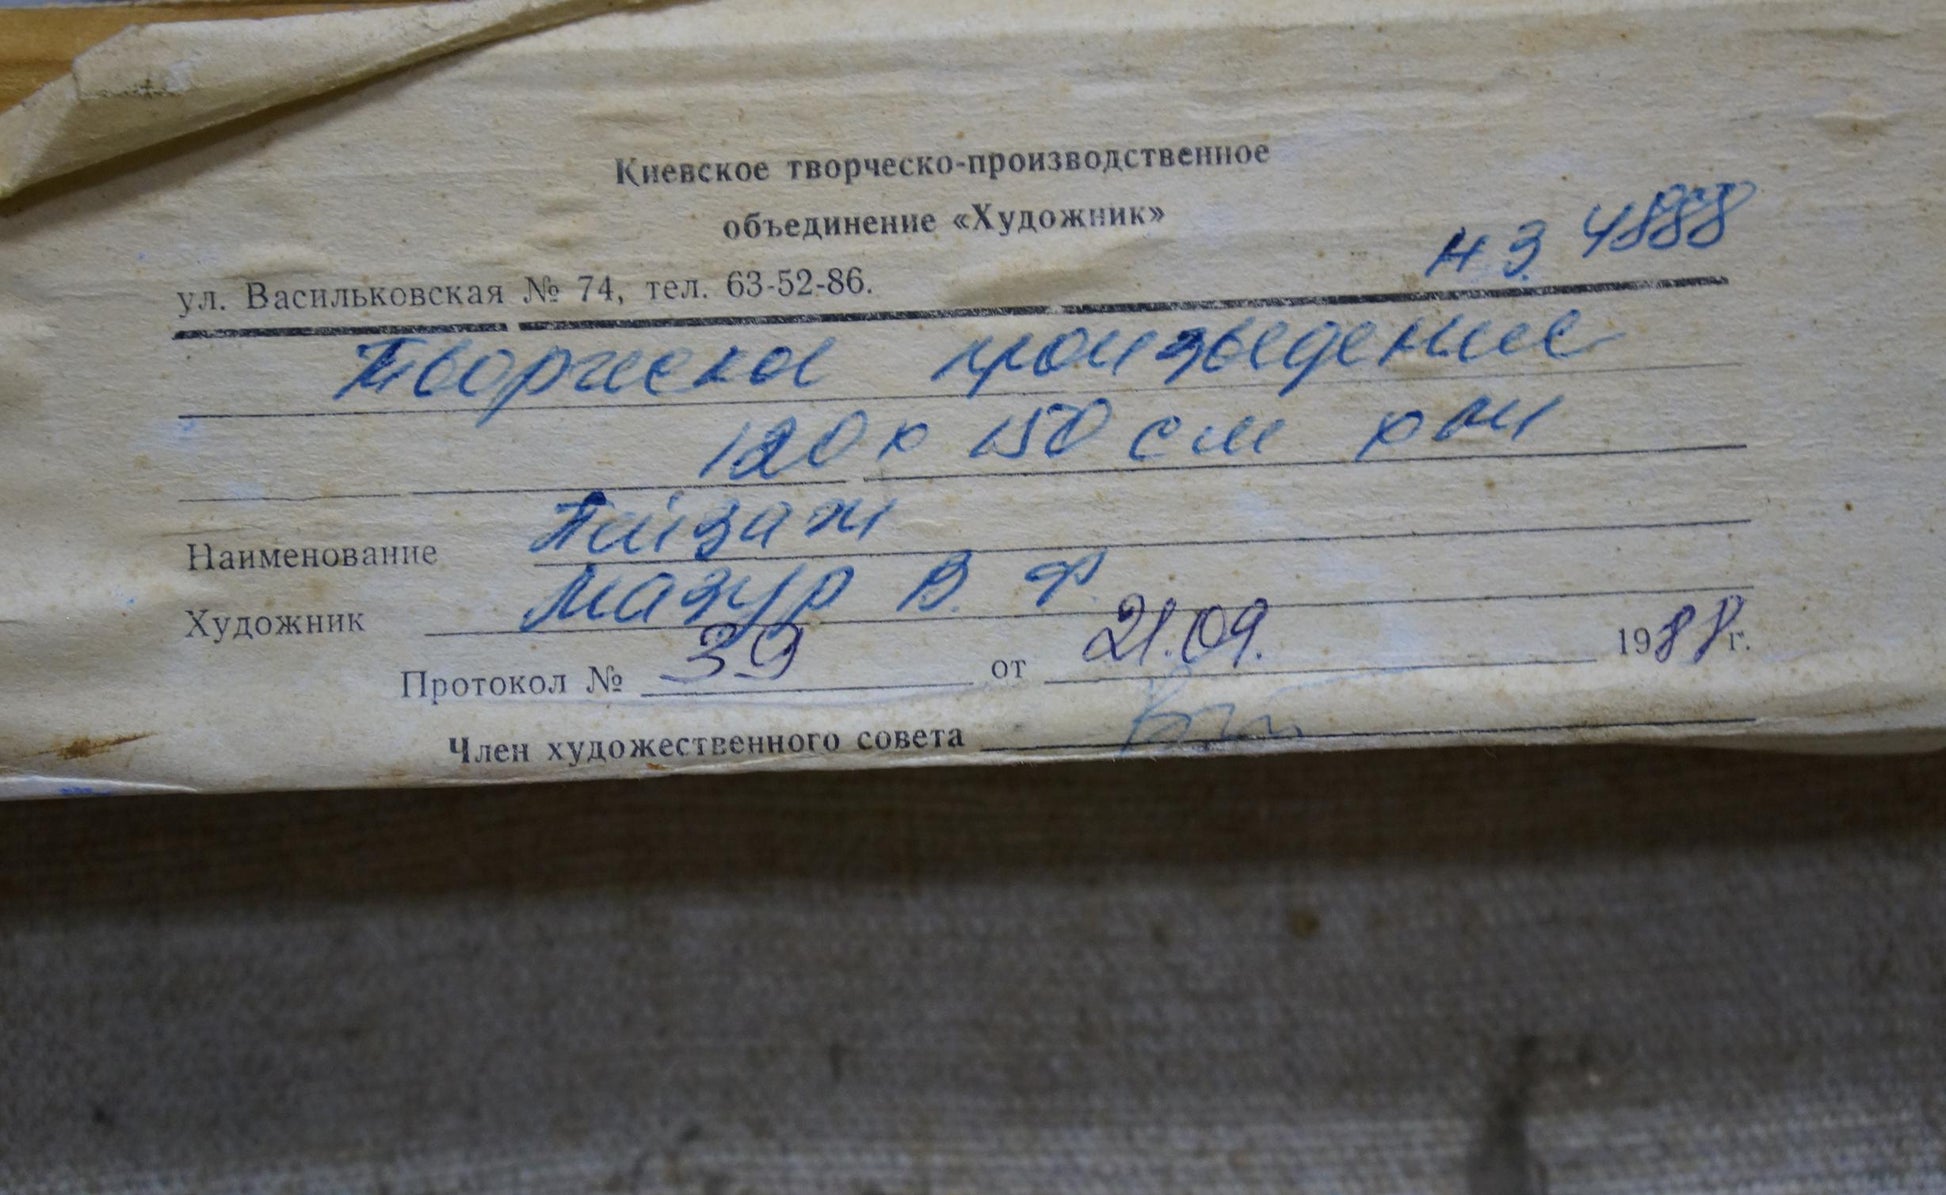 Киевское творческо-производственное
объединение «Художник»
н з. 4888
ул. Васильковская № 74, тел. 63-52-86.
Творческое произведение
120 х 150 см хм
Наименование Пейзаж
Художник Мазур В. Ф.
Протокол № 39 от 21.09. 1988 г.
Член художественного совета